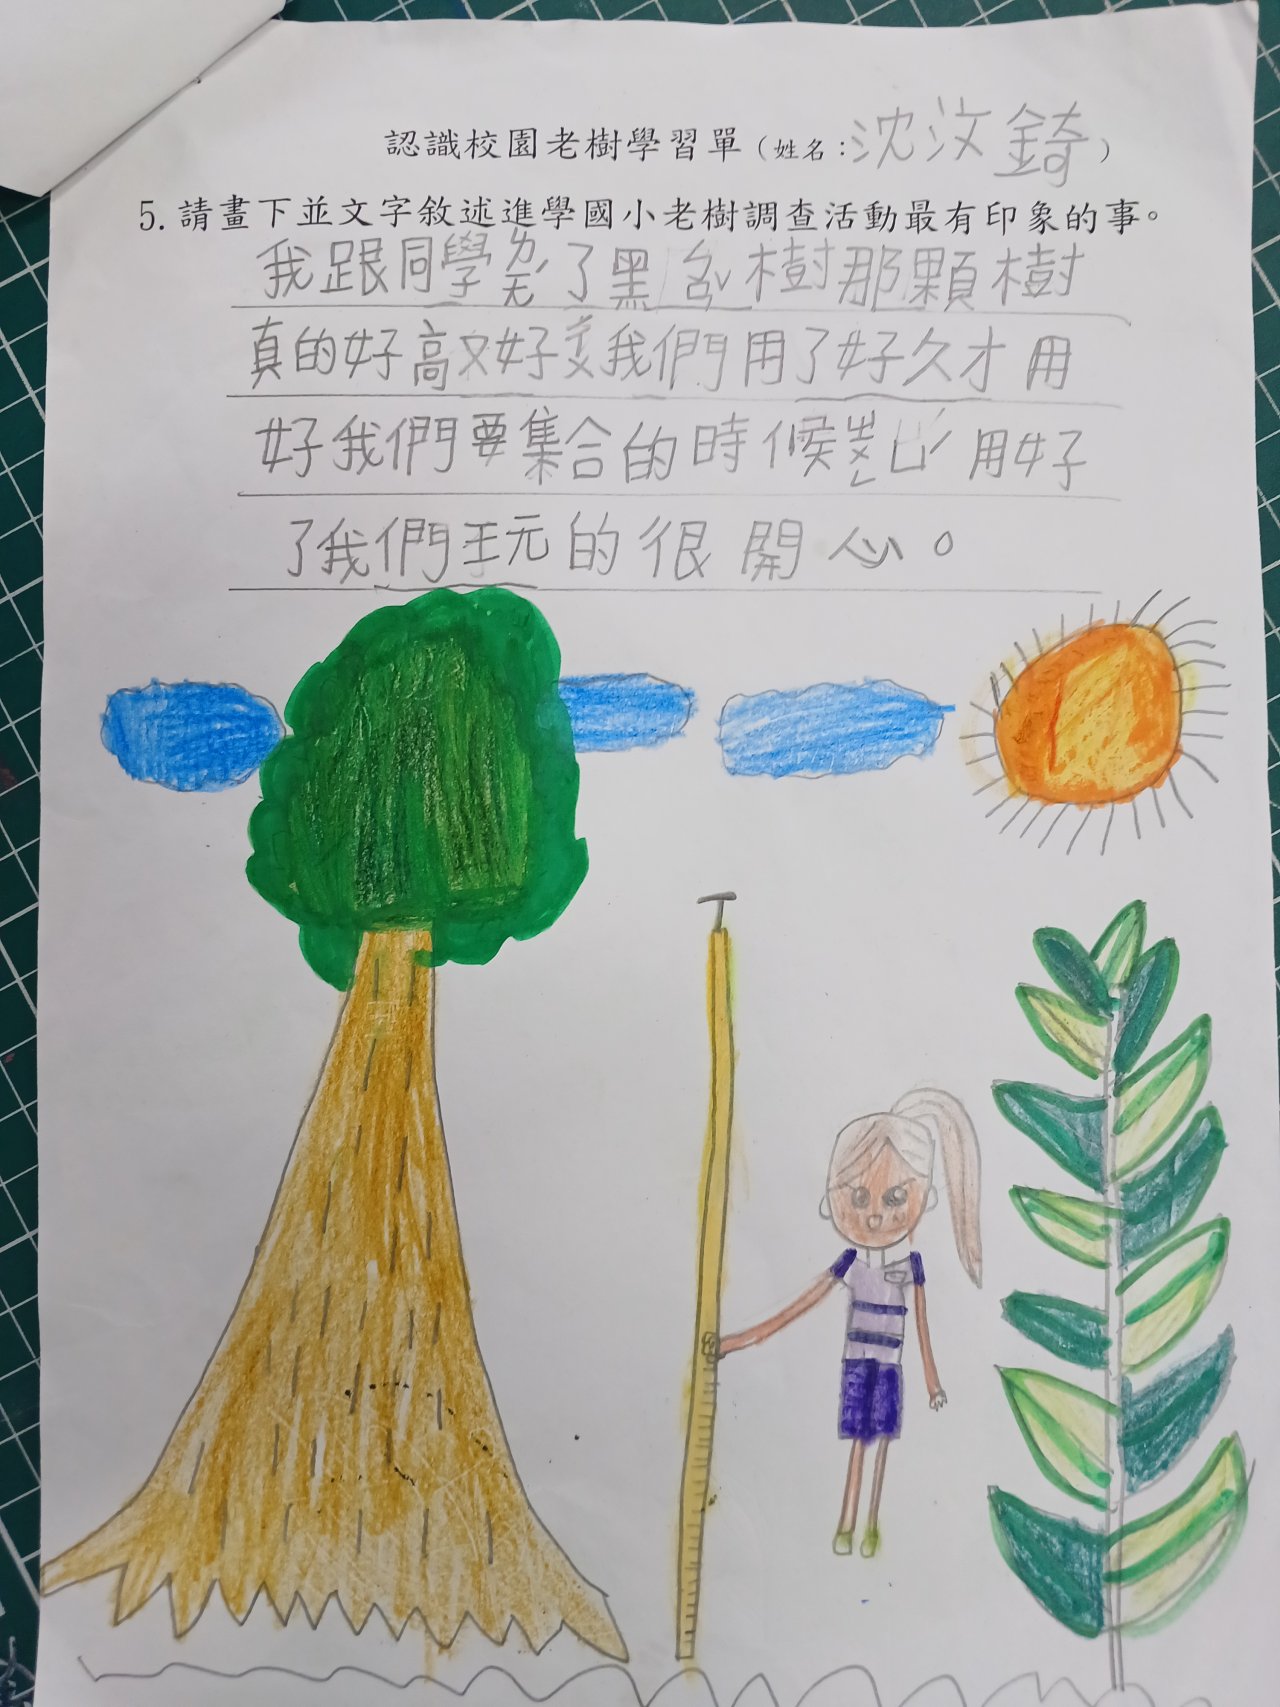 認識校園老樹學習單(姓名:沈汶錡)
5.請畫下並文字敘述進學國小老樹調查活動最有印象的事。
我跟同學ㄌㄧㄤˊ了黑ㄅㄢˇ樹那顆樹
真的好高又好我們用了好久才用
好我們要集合的時候用好
了我們玩的很開心。